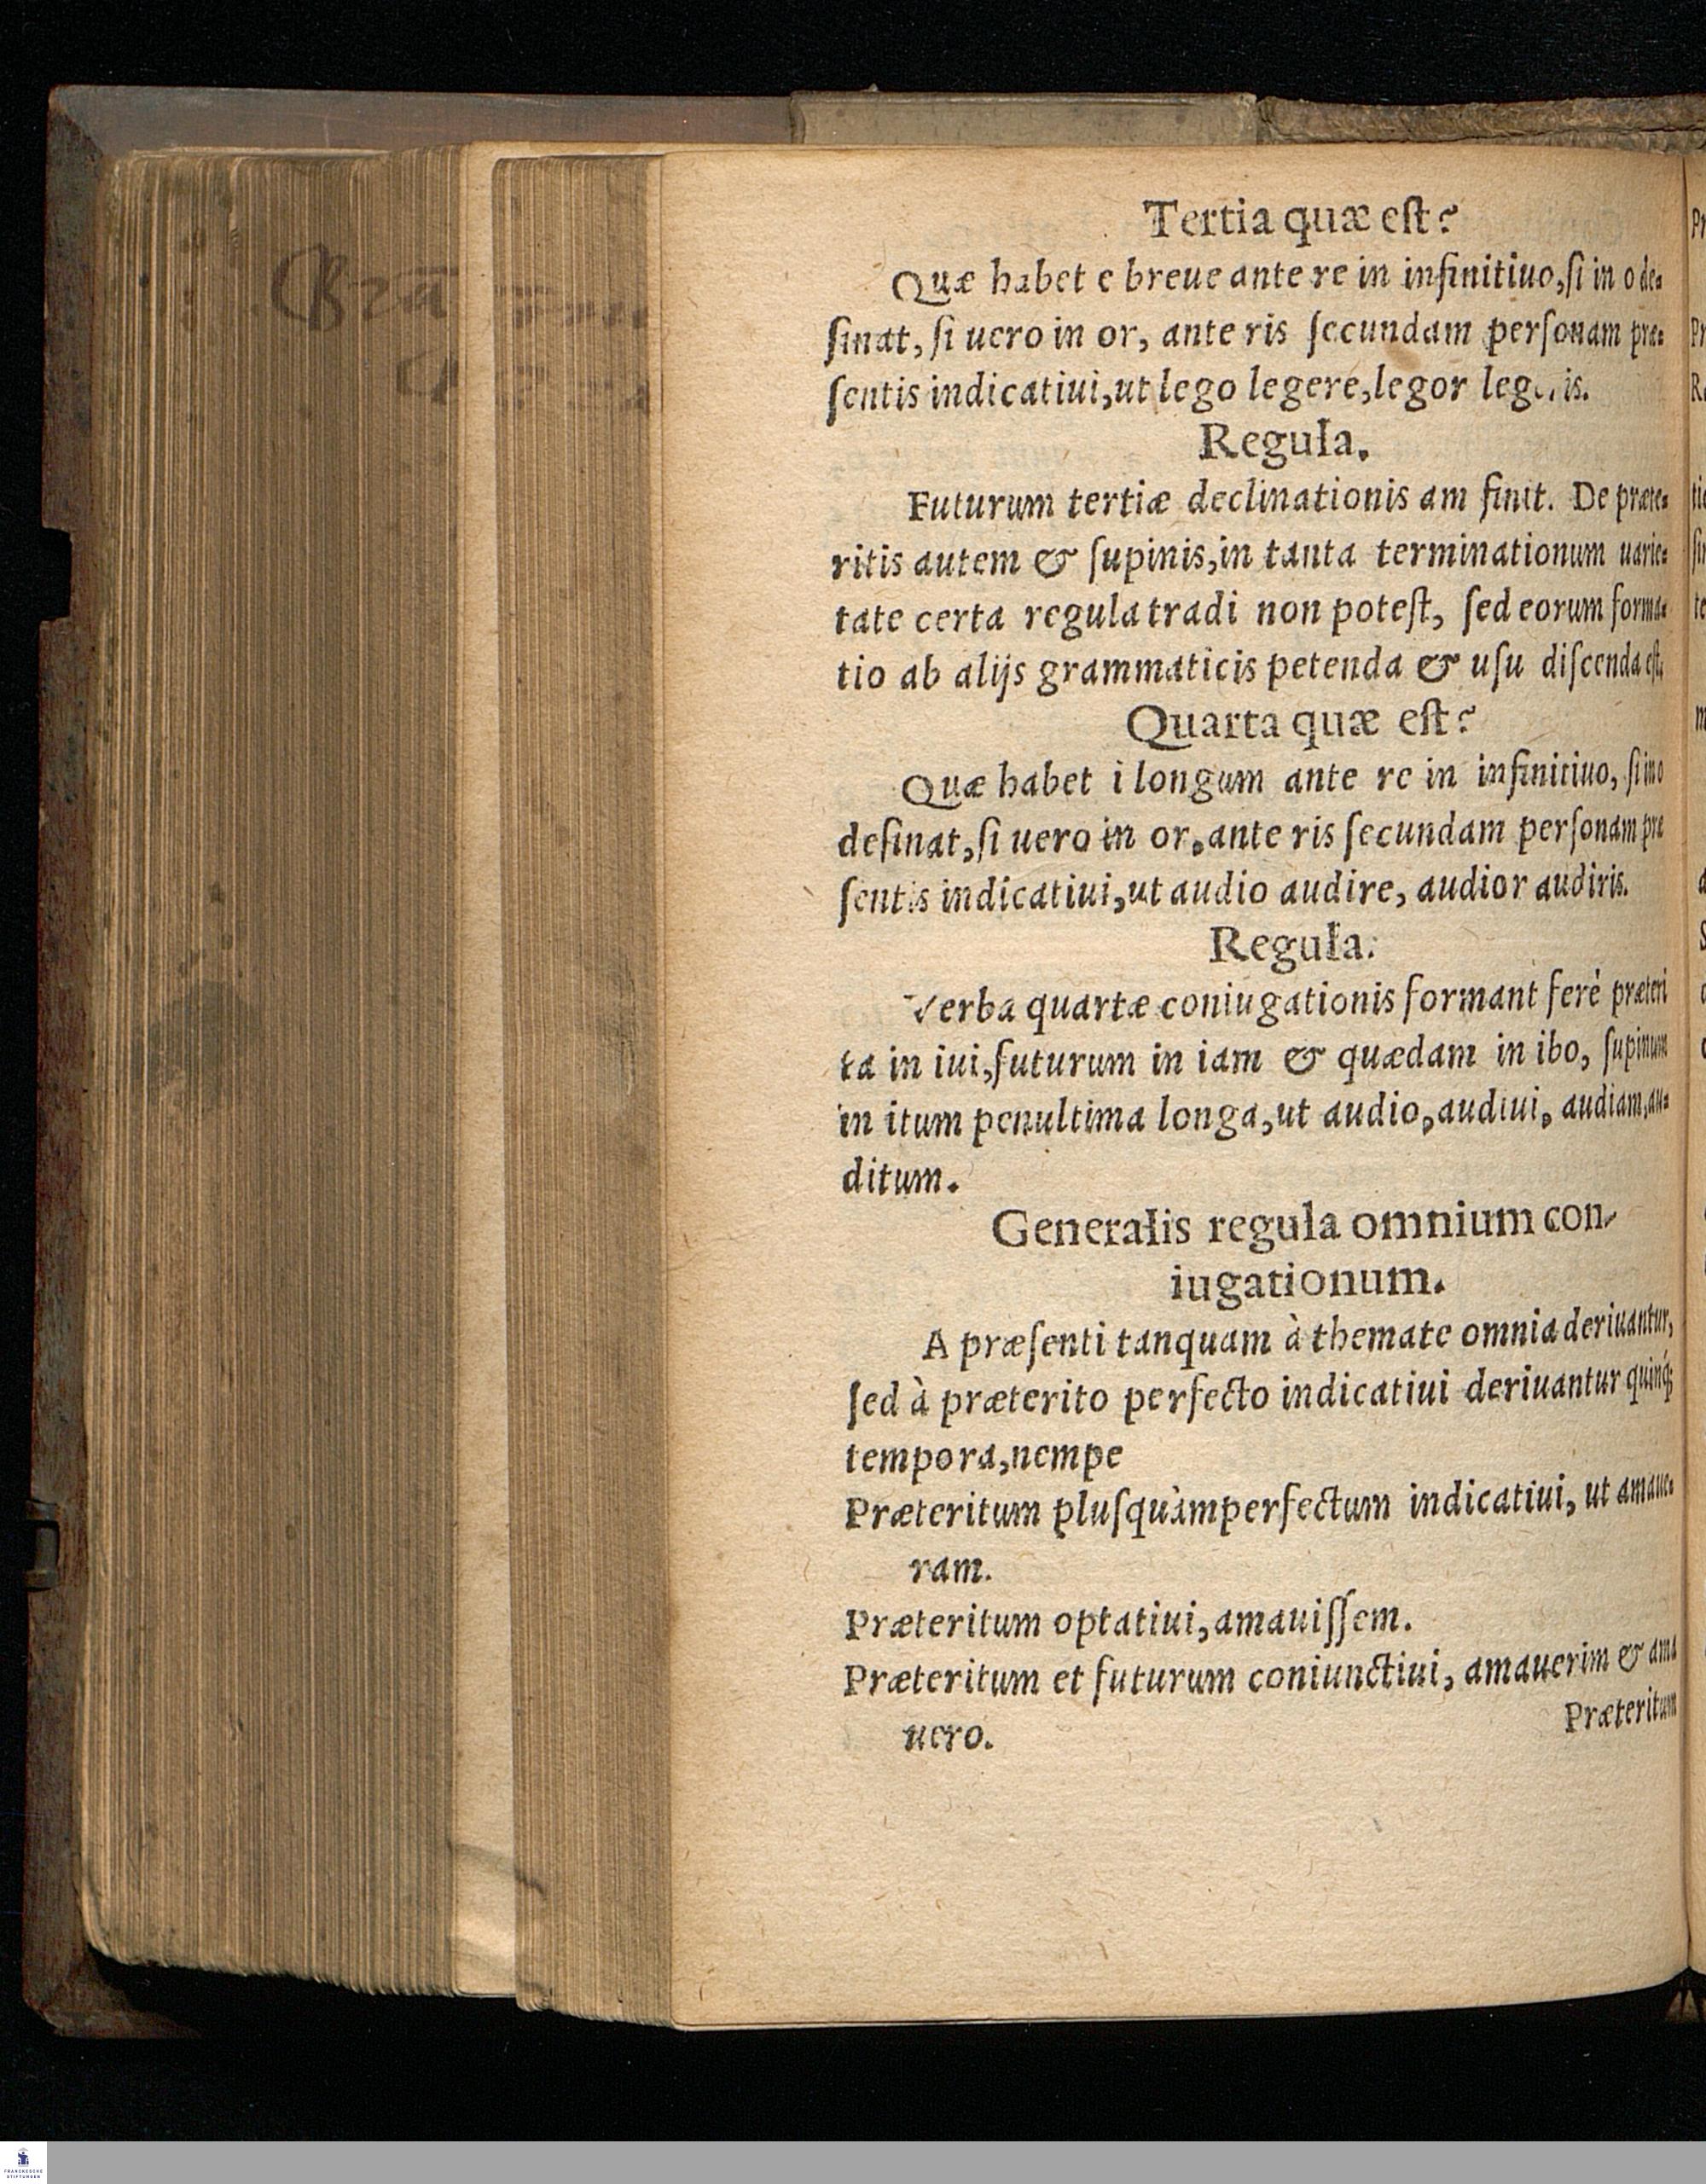 Tertia quæ eſt?
Quæ habet e breue ante re in infinitiuo, ſi in o de-
ſinat, ſi uero in or, ante ris ſecundam perſonam præ-
ſentis indicatiui, ut lego legere, legor legeris.
Regula.
Futurum tertiæ declinationis am finit. De præte-
ritis autem & ſupinis, in tanta terminationum uarie-
tate certa regula tradi non poteſt, ſed eorum forma-
tio ab alijs grammaticis petenda & uſu diſcenda eſt.
Quarta quæ eſt?
Quæ habet i longum ante re in infinitiuo, ſi in o
deſinat, ſi uero in or, ante ris ſecundam perſonam præ
ſentis indicatiui, ut audio audire, audior audiris.
Regula.
Verba quartæ coniugationis formant ferè præteri
ta in iui, futurum in iam & quædam in ibo, ſupinum
in itum penultima longa, ut audio, audiui, audiam, au-
ditum.
Generalis regula omnium con-
iugationum.
A præſenti tanquam à themate omnia deriuantur,
ſed à præterito perfecto indicatiui deriuantur quinq;
tempora, nempe
Præteritum pluſquàmperfectum indicatiui, ut amaue-
ram.
Præteritum optatiui, amauiſſem.
Præteritum et futurum coniunctiui, amauerim & ama
uero.
Præteritum
FRANCKESCHE
STIFTUNGEN